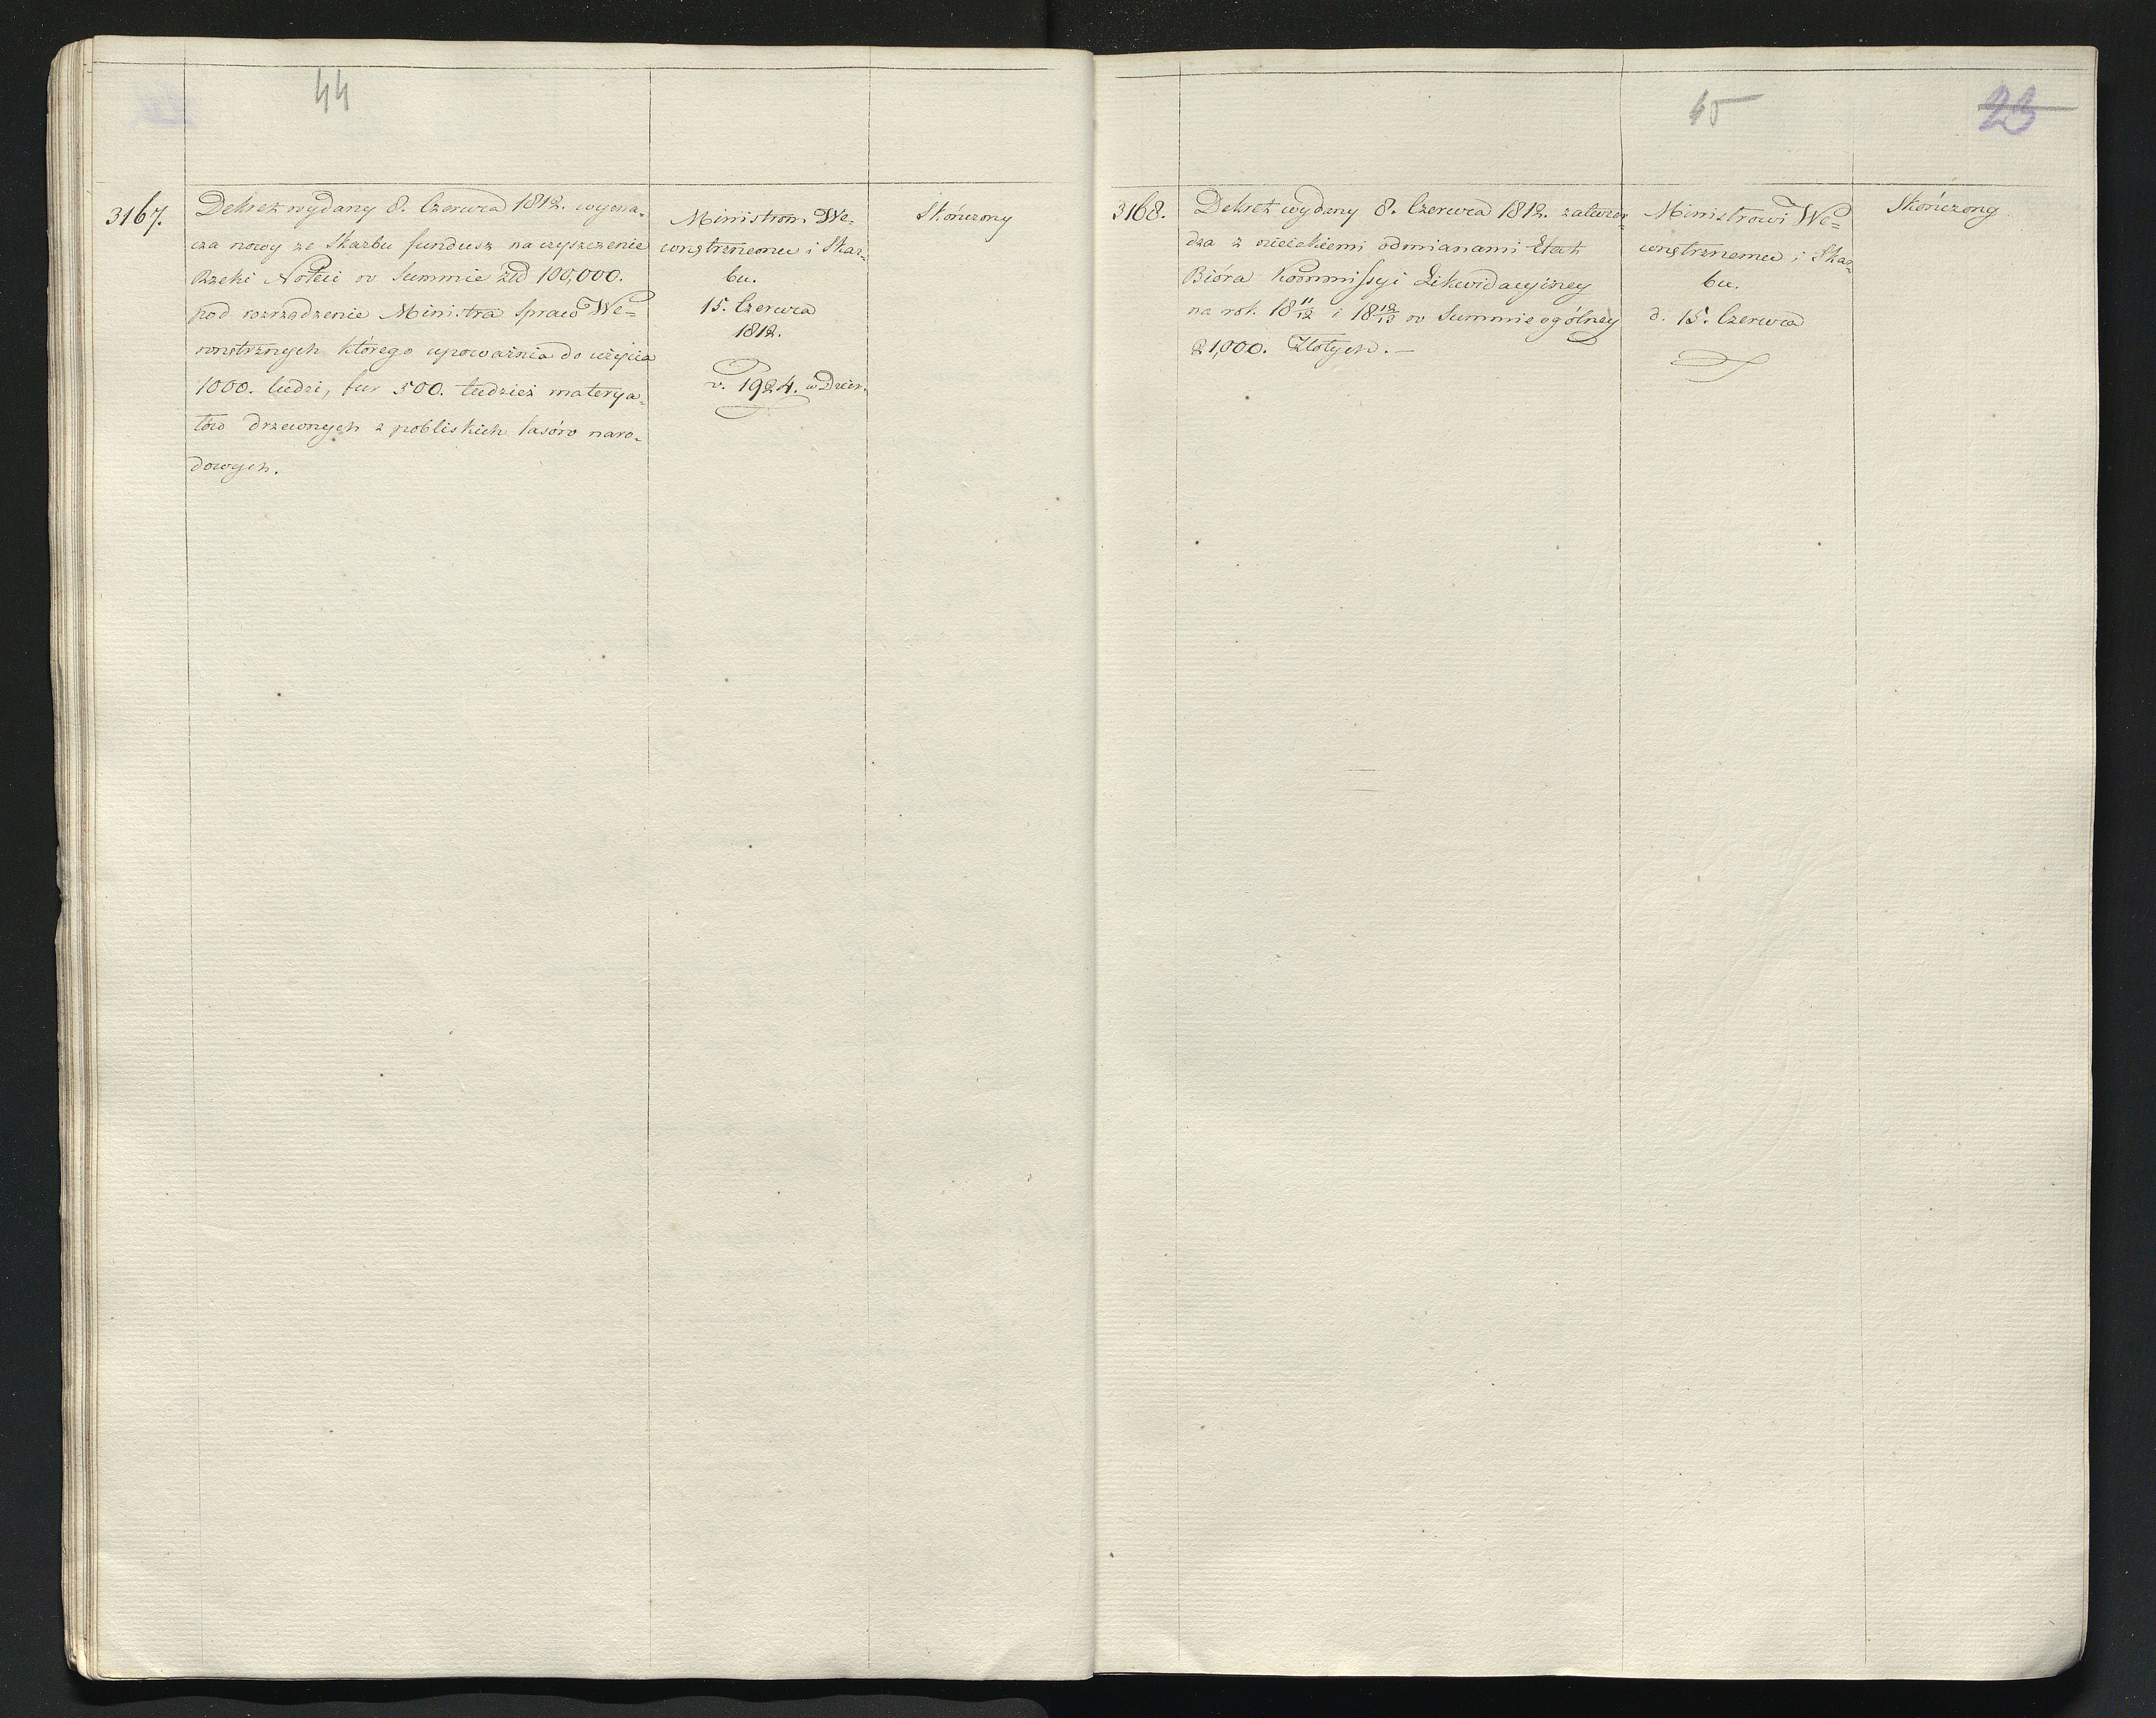 44
3167.
Dekret wydany 8. Czerwca 1812. wyzna-
cza nowy ze Skarbu fundusz na czyszczenie
Rzeki Noteci w Summie Złł 100,000.
pod rozrządzenie Ministra Spraw We=
wnętrznych którego upoważnia do użycia
1000. ludzi, fur 500. tudzież materya-
łów drzewnych z pobliskich lasów naro-
dowych.
Ministrom We-
wnętrznemu i Skar-
bu.
15. Czerwca
1812.
v. 1924. w Dzien.
Skończony
45
23
3168.
Dekret wydany 8. Czerwca 1812. zatwier-
dza z niejakiemi odmianami Etat
Bióra Kommissyi Likwidacyiney
na rok 18 11/12 i 18 12/13 w Summie ogólney
21,000. Złotych. —
Ministrowi We=
wnętrznemu i Skar-
bu.
d. 15. Czerwca
Skończony